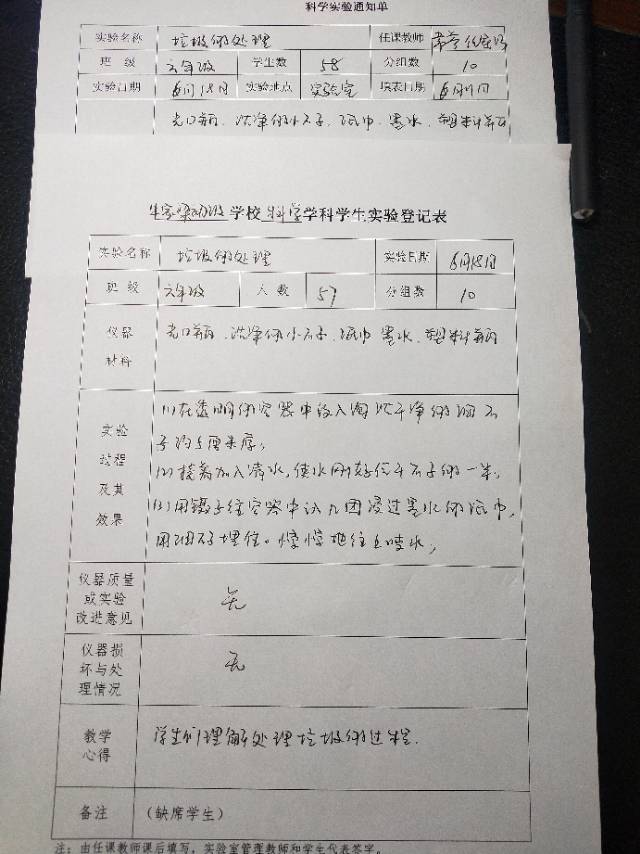 科学实验通知单
实验名称 垃圾的处理 任课教师
班级 六年级 学生数 58 分组数 10
实验日期 6月18日 实验地点 实验室 填表日期 6月11日
广口瓶、洗净的小石子、纸巾、墨水、塑料瓶
学校科学学科学生实验登记表
实验名称 垃圾的处理 实验日期 6月18日
班级 六年级 人数 57 分组数 10
仪器材料 广口瓶、洗净的小石子、纸巾 墨水、塑料瓶
实验过程及其效果
(1)在透明的容器中放入淘洗干净的细石
子约5厘米厚;
(2)接着加入清水,使水刚好位于石子的一半;
(3)用镊子往容器中认九团浸过墨水的纸巾,
用细石子埋住。慢慢地往上喷水;
仪器质量或实验改进意见 无
仪器损坏与处理情况 无
教学心得 学生们理解处理垃圾的过程.
备注 (缺席学生)
注:由任课教师课后填写,实验室管理教师和学生代表签字。